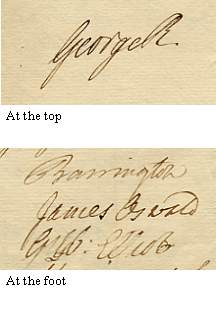 George R
At the top
Barrington
James Oswald
Gilb: Elliot
At the foot